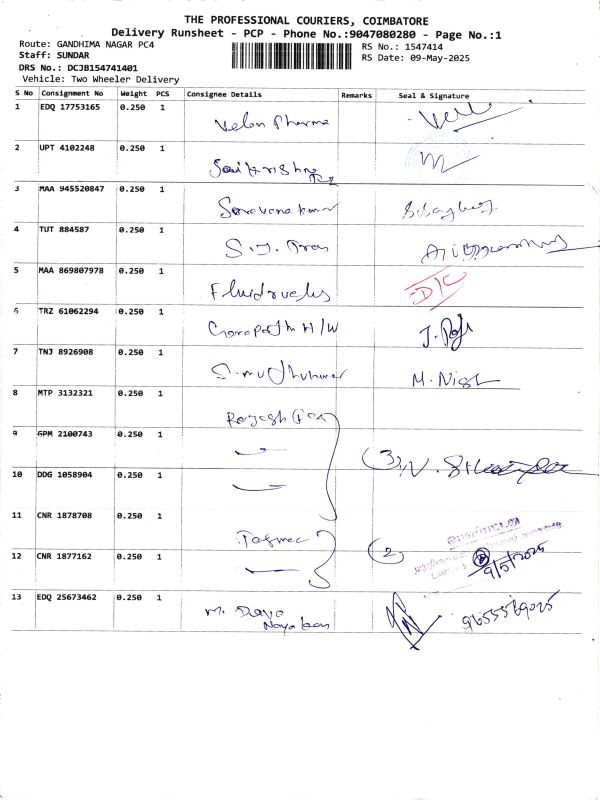 THE PROFESSIONAL COURIERS, COIMBATORE
Delivery Runsheet - PCP - Phone No.:9047080280 - Page No.:1
Route: GANDHIMA NAGAR PC4
Staff: SUNDAR
DRS No.: DCJB154741401
Vehicle: Two Wheeler Delivery
RS No.: 1547414
RS Date: 09-May-2025
S No Consignment No Weight PCS Consignee Details Remarks Seal & Signature
1 EDQ 17753165 0.250 1 Velan Pharma
2 UPT 4102248 0.250 1 Sai Krishna
3 MAA 945520847 0.250 1 Saravanakumar
4 TUT 884587 0.250 1 S.J.
5 MAA 869807978 0.250 1 D/C
6 TRZ 61062294 0.250 1 H/W J.
7 TNJ 8926908 0.250 1 M.
8 MTP 3132321 0.250 1 Rajesh
9 GPM 2100743 0.250 1 (3)
10 DDG 1058904 0.250 1
11 CNR 1878708 0.250 1 Tasmac
12 CNR 1877162 0.250 1 (2) 9/5/2025
13 EDQ 25673462 0.250 1 M. 9655569025